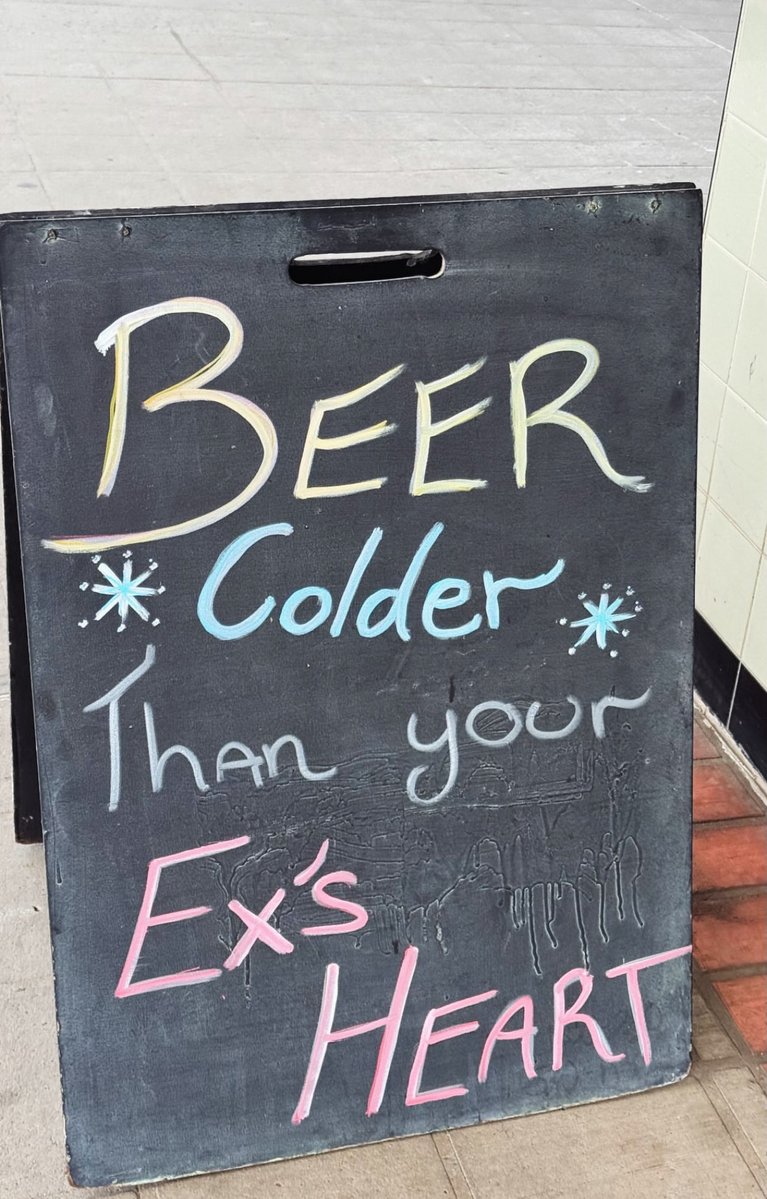 BEER
Colder
Than your
Ex's
HEART